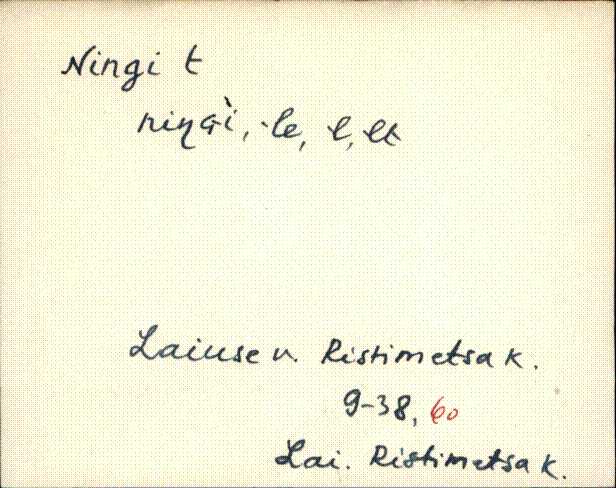 Ningi t
niŋG̀i, -le, -l, -lt
Laiuse v. Ristimetsa k.
9-38, 60
Lai. Ristimetsa k.